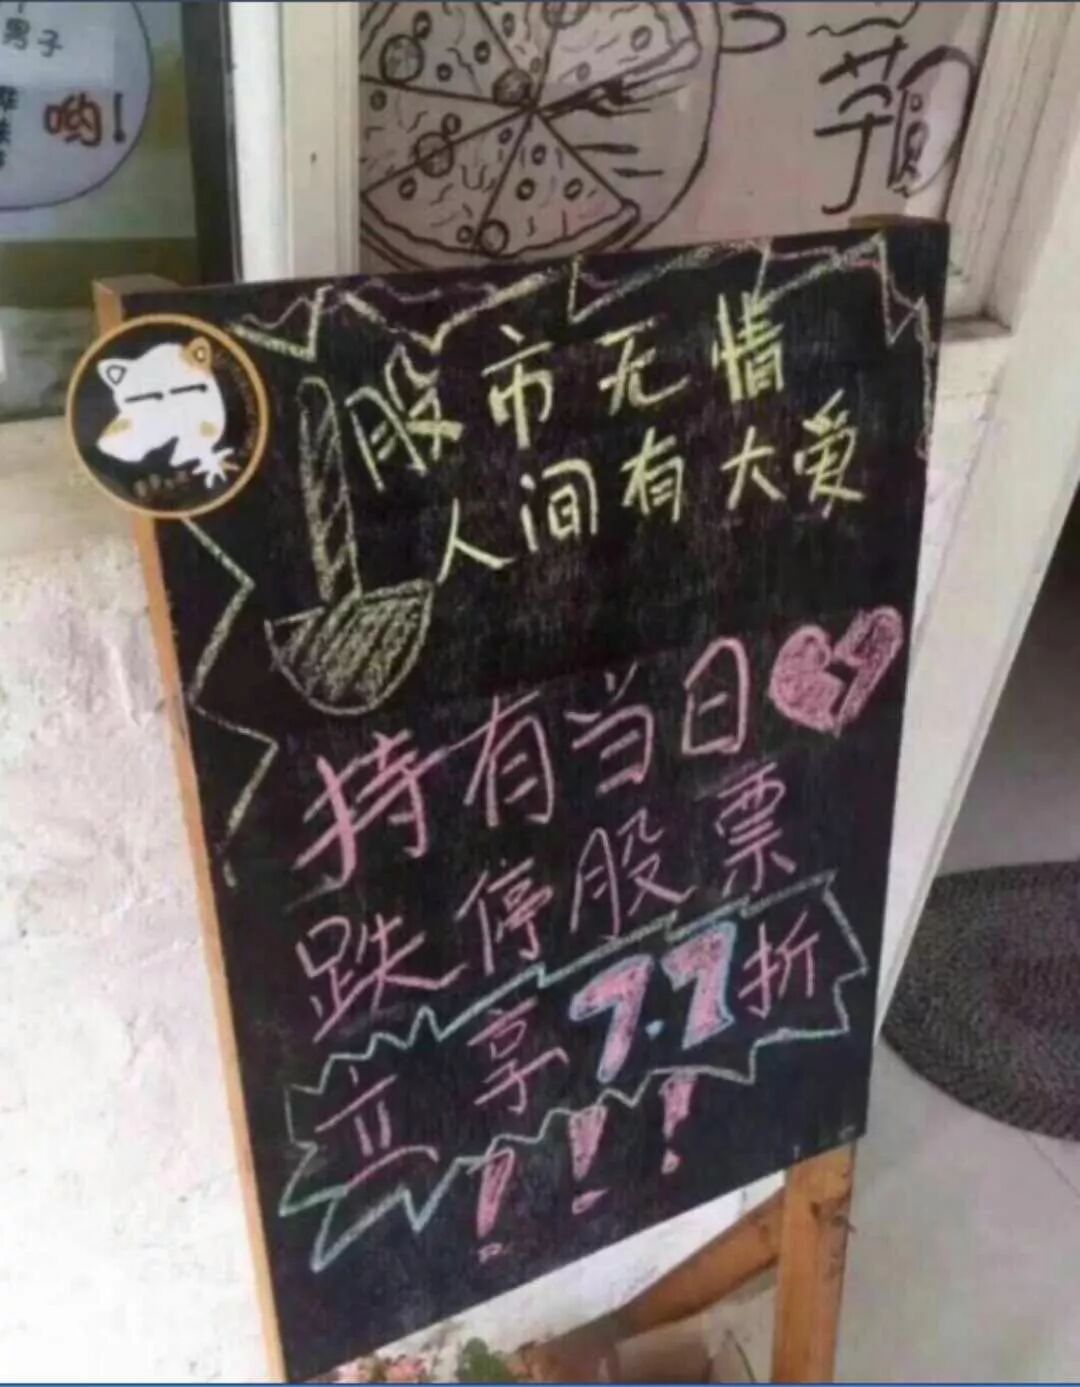 男子
哟!
股市无情
人间有大爱
持有当日
跌停股票
立享7.7折
!!!